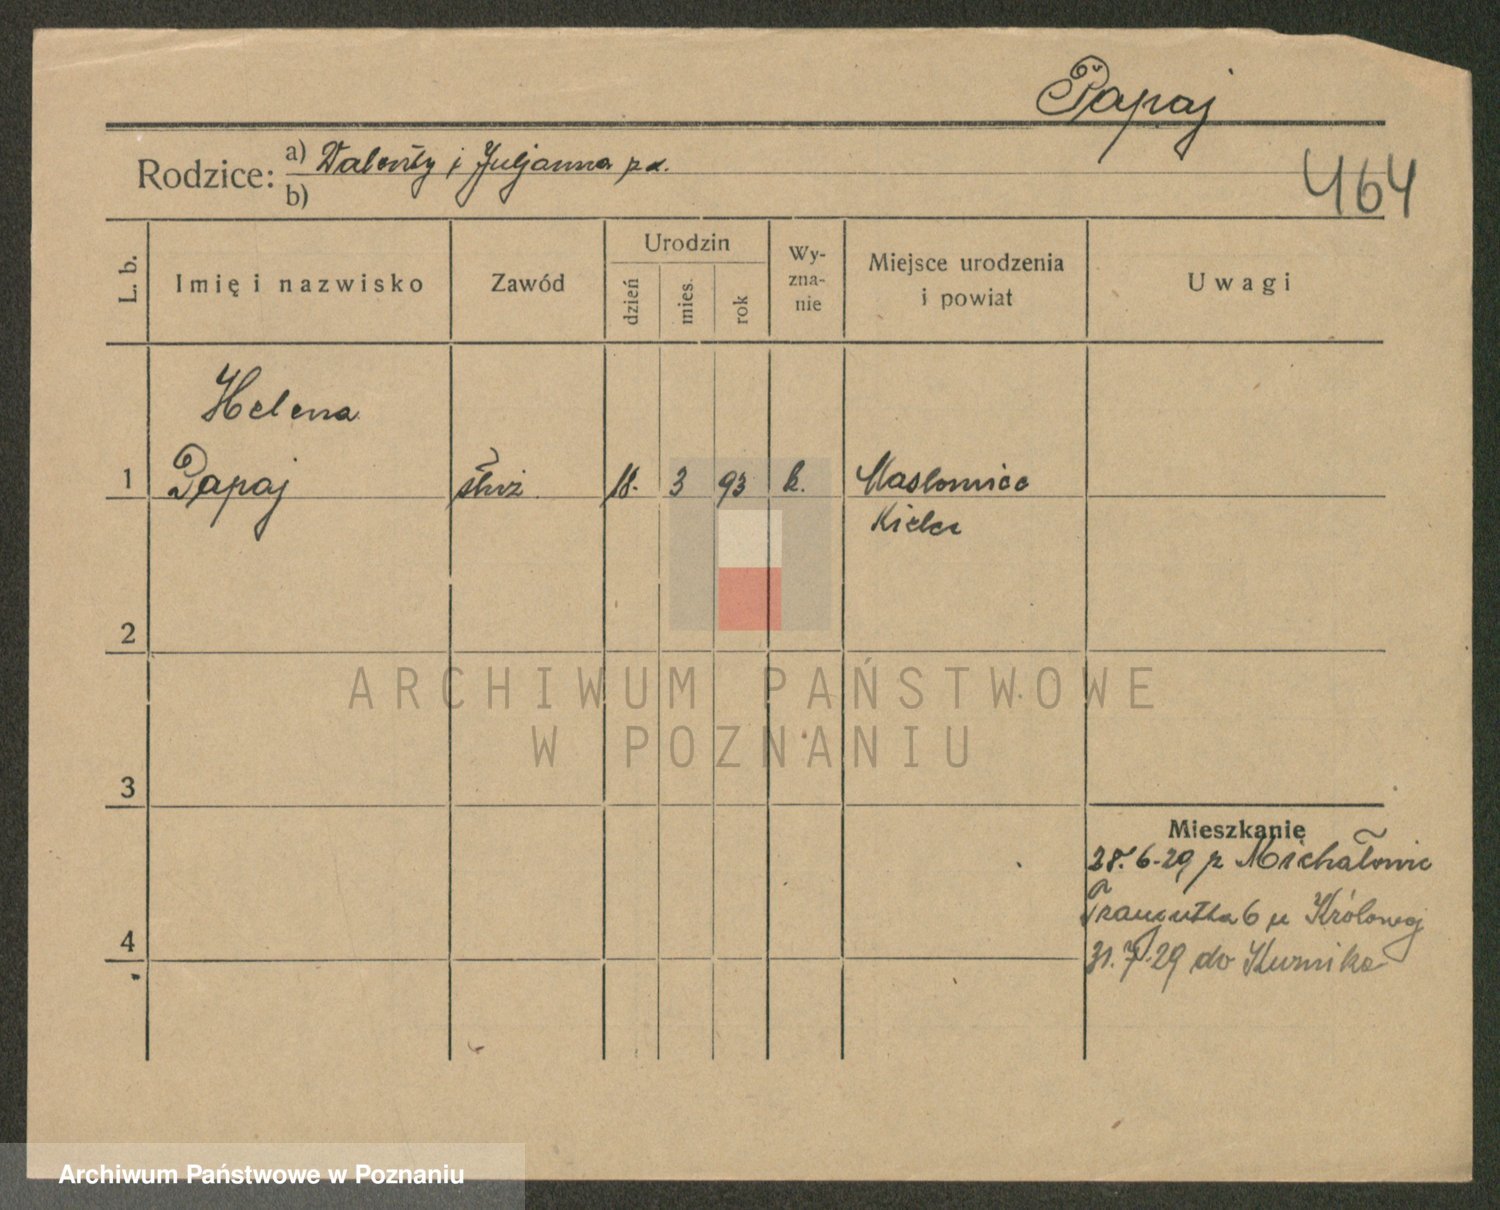 Papaj
Rodzice: a) Walenty i Juljanna
b)
464
L. b. Imię i nazwisko Zawód Urodzin dzień mies. rok Wyznanie Miejsce urodzenia i powiat Uwagi
Helena
1 Papaj służ. 18. 3 93 k. Masłowice
Kielce
2
ARCHIWUM PAŃSTWOWE
W POZNANIU
3
Mieszkanie
28.6.29 z Michałowic
Traugutta 6 u Królowej
4
31.7.29 do Kurnika
Archiwum Państwowe w Poznaniu